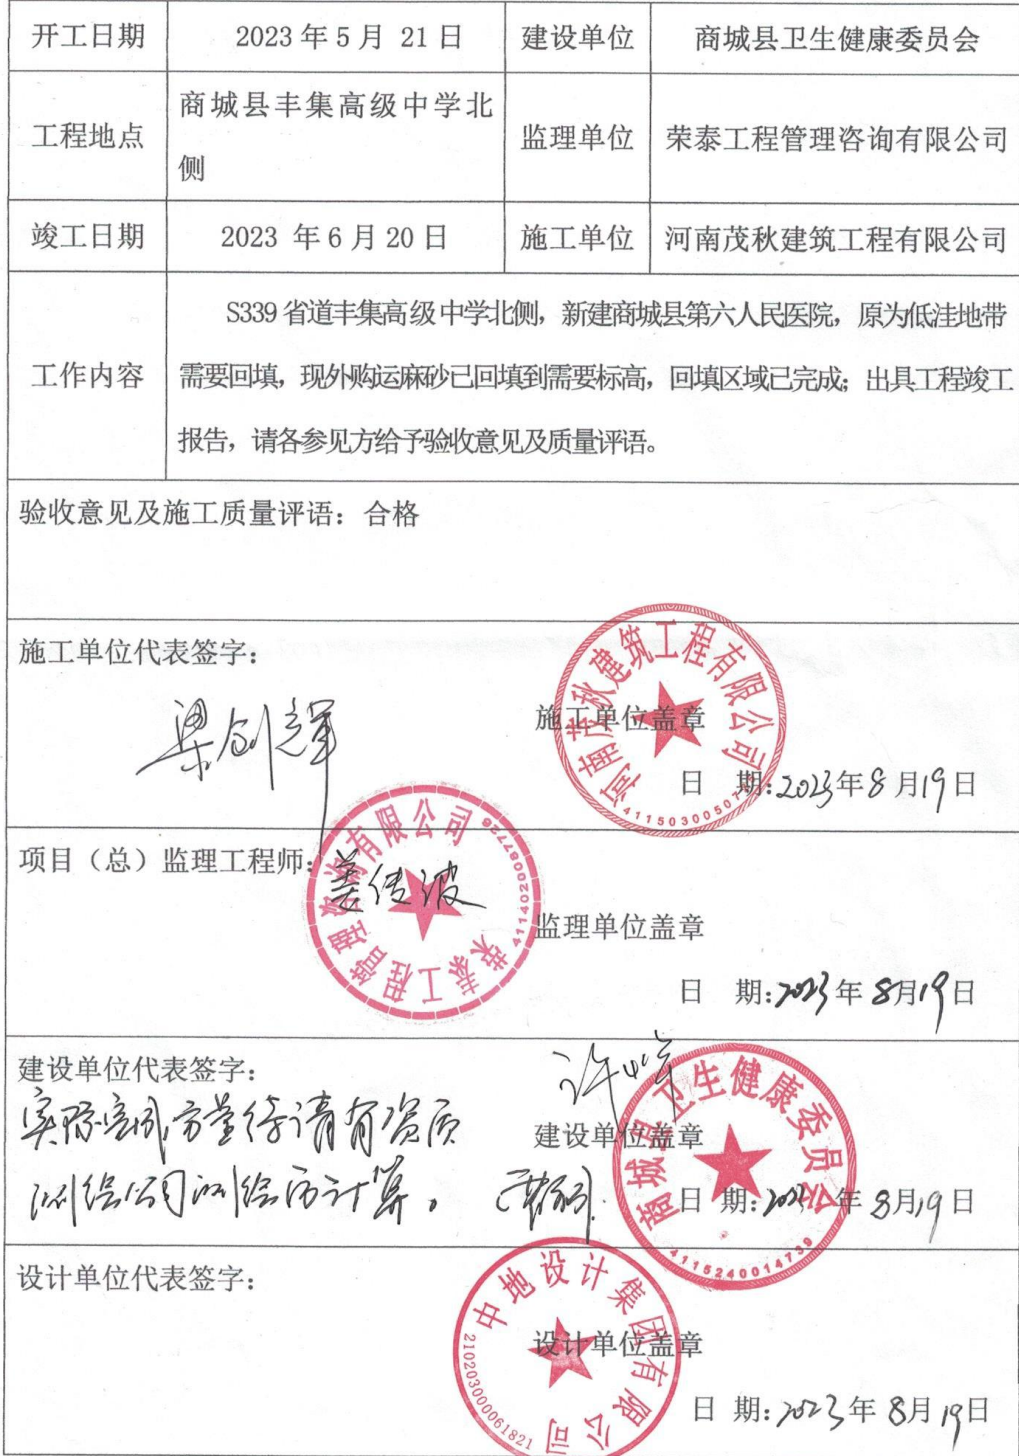 开工日期 2023年5月 21日 建设单位 商城县卫生健康委员会
工程地点 商城县丰集高级中学北侧 监理单位 荣泰工程管理咨询有限公司
竣工日期 2023 年6月20日 施工单位 河南茂秋建筑工程有限公司
工作内容
S339 省道丰集高级中学北侧，新建商城县第六人民医院，原为低洼地带
需要回填，现外购运麻砂已回填到需要标高，回填区域已完成；出具工程竣工
报告，请各参见方给予验收意见及质量评语。
验收意见及施工质量评语：合格
施工单位代表签字：
河南茂秋建筑工程有限公司
施工单位盖章
日 期:2023年8月19日
项目（总）监理工程师：
姜传波
荣泰工程管理咨询有限公司
4114020087726
监理单位盖章
日 期:2023年8月19日
建设单位代表签字：
实际完成方量待请有资质
测绘公司测绘后计算。
商城县卫生健康委员会
4115240014739
建设单位盖章
日 期:2023年8月19日
设计单位代表签字：
中地设计集团有限公司
210203000061821
设计单位盖章
日 期:2023年8月19日